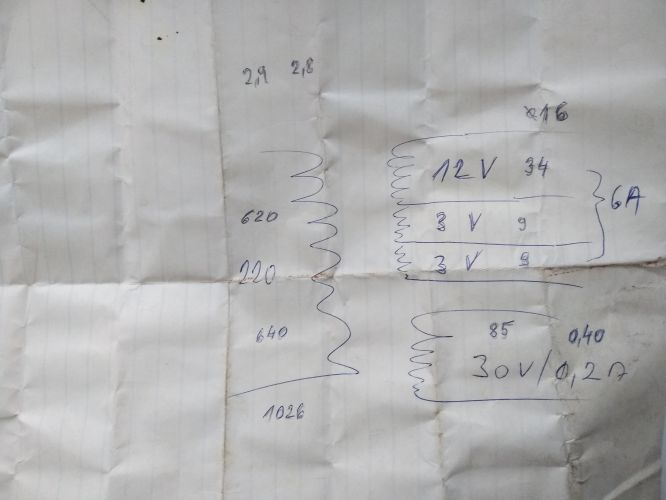 2,9 2,8
ø16
12 V 34
6A
620
3 V 9
220
3 V 9
640
85 0,40
30V/0,2A
1026